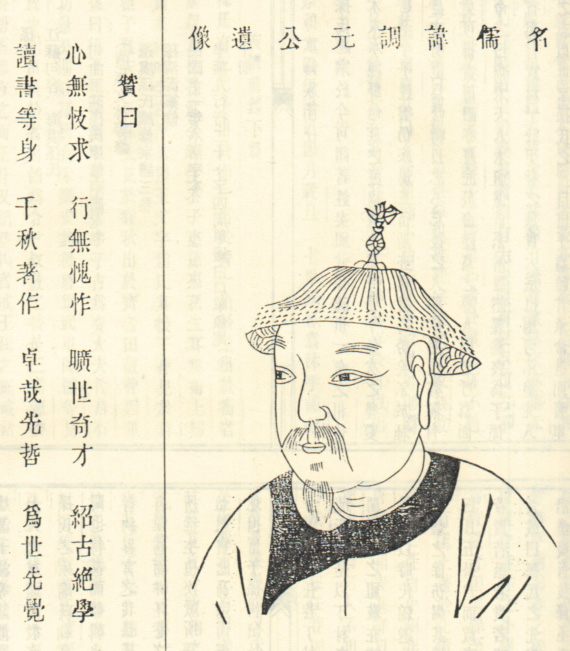 名儒諱調元公遺像
贊曰
心無忮求 行無愧怍 曠世奇才 紹古絕學
讀書等身 千秋著作 卓哉先哲 爲世先覺